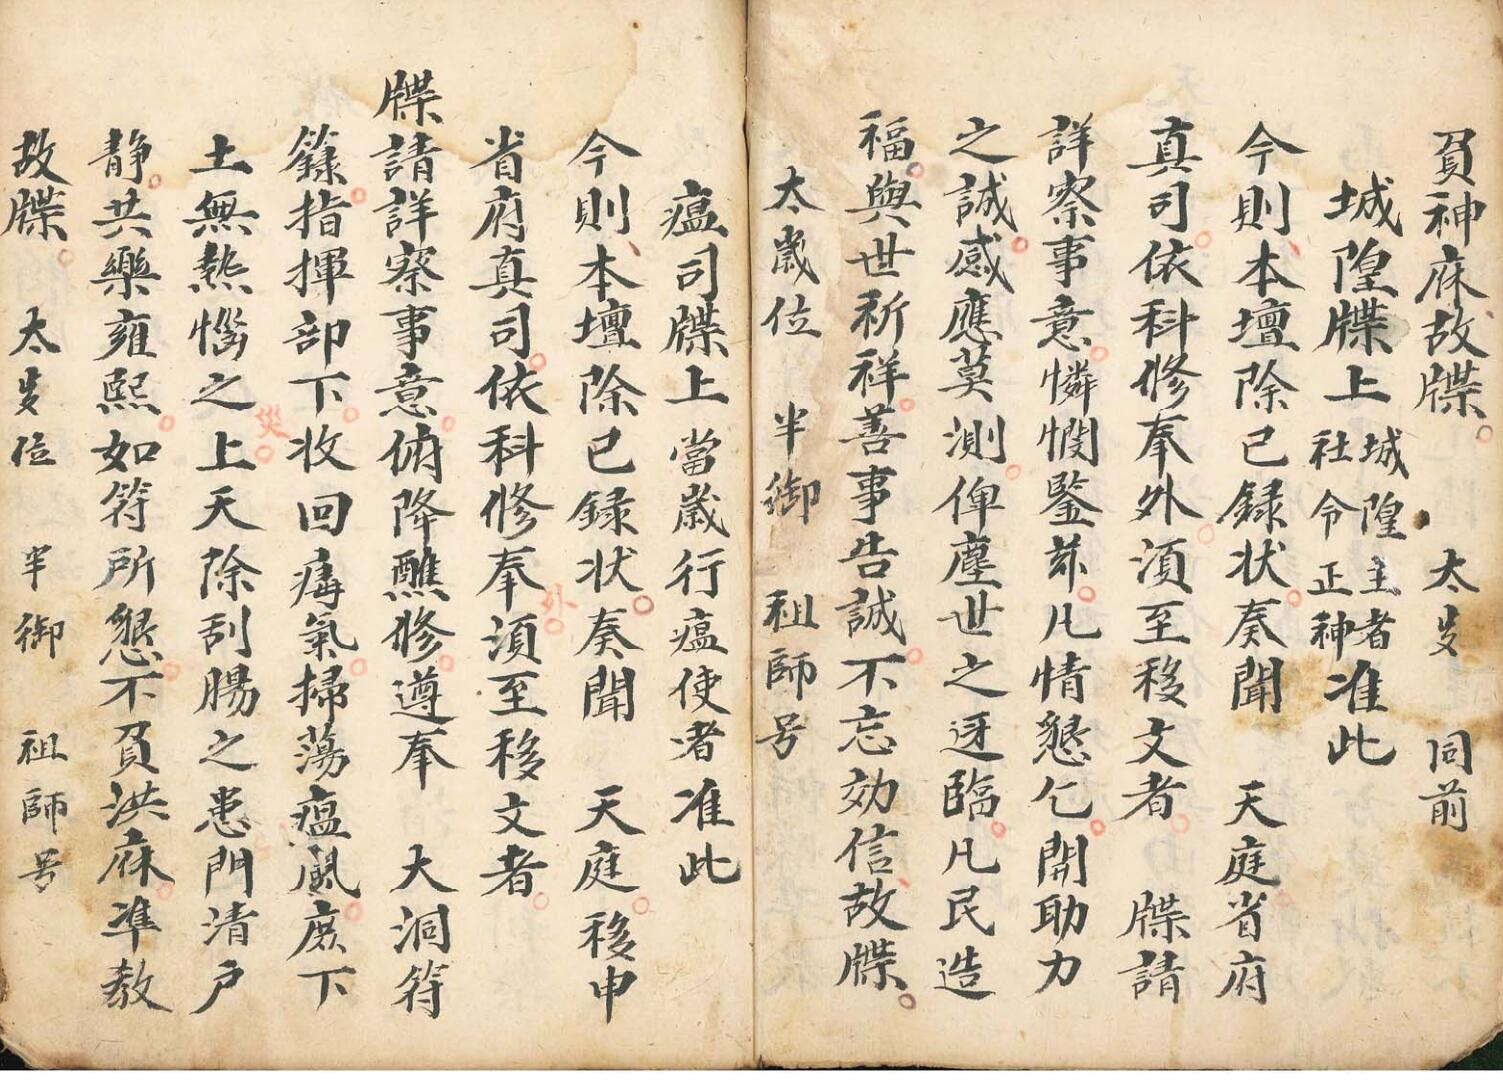 負神庥故牒。太岁　同前
城隍牒上城隍主者社令正神准此
今則本壇除已録状奏聞　天庭省府
真司依科修奉外湏至移文者　牒請
詳察事意憐憫鑒莽凡情懇乞開助力
之誠感應莫測俾塵世之迓臨凡民造
福與世祈祥善事告誠不忘効信故牒。
太歲位　半御　祖師号
瘟司牒上當歲行瘟使者准此
今則本壇除已録状奏聞　天庭移申
省府真司依科修奉外湏至移文者
牒請詳察事意俯降醮修遵奉　大洞符
籙指揮部下收回毒氣掃蕩瘟風庶下
土無熱惱之災上天除刮腸之患門清戶
静共樂雍熙如符所懇不負洪庥準教
故牒。太岁位　半御　祖師号